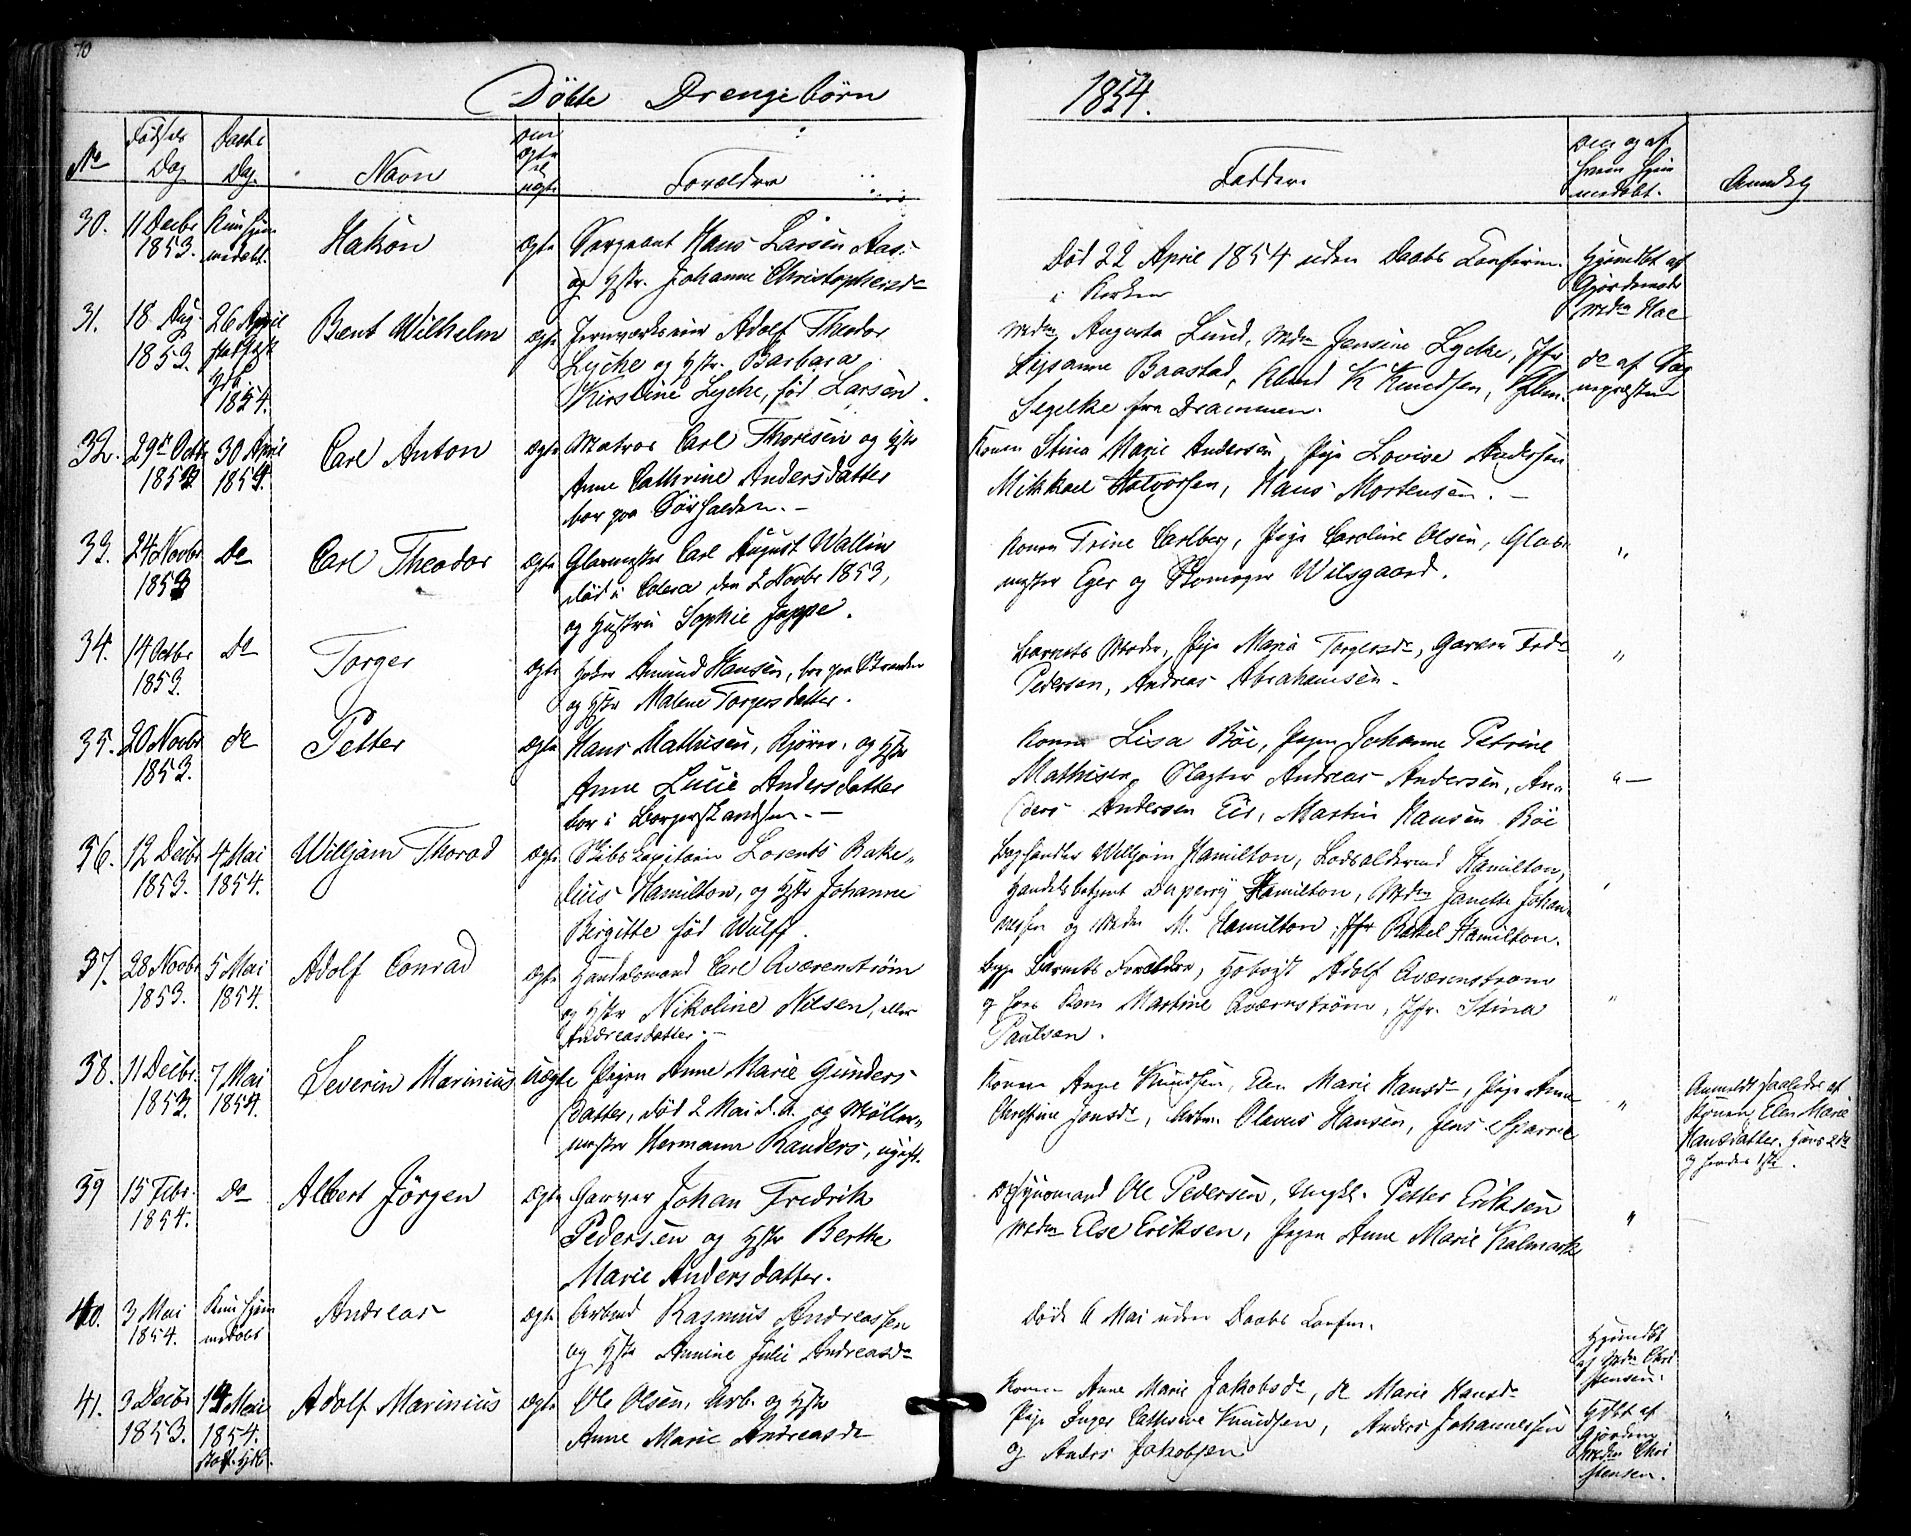 70
Döbte Drengebörn 1854.
No Födsels Dag Daabs Dag. Navn Om ægte el uægte Forældre Faddere Om og af hvem hjemmedøbt. Anmkg
30. 11 Decbr 1853. Kun hjemmedøbt. Hakon ægte Sergeant Hans Larsen Aas
og Hstr. Johanne Christophersdr
Död 22 April 1854 uden Daabs Confirm.
i Kirken
Hjemdbt af Gjordemoder Mdm
31. 18 Aug. 1853. 26 April 1854. Bent Wilhelm ægte Adolf Theodor
Lycke og Hstr. Barbara
Kirstine Lycke, föd Larsen.
Mdm Augusta Lund, Mdm Jensine Lycke, Jfr
Baastad, K Knudsen,
Segelke fra Drammen.
do af
32. 29de Octbr 1853 30 April 1854. Carl Anton ægte Matros Carl Thoresen og Hstr
Anne Cathrine Andersdatter
bor paa Sörhalden. –
Konen Stina Marie Andersen, Pige Lovise Andersen
Mikkael Halvorsen, Hans Mortensen. –
33. 24 Novbr 1853 Do Carl Theodor ægte Glarmester Carl August Wallin
död i Colera den 2 Novbr 1853,
og Hustru Sophie Jappe.
Konen Trine Carlberg, Pige Caroline Olsen, Glar-
mester Eger og Skomager Wilsgaard.
"
34. 14 Octbr 1853. Do Torger ægte Amund Hansen, bor paa Stranden
og Hstr Malene Torgersdatter.
Barnets Moder, Pige Maria Torgersdr, Garver Fredr
Pedersen, Andreas Abrahamsen.
"
35. 20 Novbr 1853. do Petter ægte Hans Mathisen, Kjører, og Hstr
Anne Lucie Andersdatter
bor i Borgerskandsen. –
Konen Lisa Böe, Pigen Johanne Petrine
Mathisen, Slagter Andreas Andersen, An-
ders Andersen Eie, Martin Hansen Böe
" –
36. 12 Decbr 1853. 4 Mai 1854. Willjam Thorod ægte Skibs Capitain Lorents Rake-
lius Hamilton, og Hstr Johanne
Birgitte föd Wulff.
Boghandler Willjam Hamilton, Lodsoldermand Hamilton,
Handelsbetjent Duperry Hamilton, Mdm Janette Johan-
nessen og Mdm M. Hamilton, Jfr Rakel Hamilton.
37. 28 Novbr 1853. 5 Mai 1854. Adolf Conrad ægte Handelsmand Carl Qværenström
og Hstr Nikoline Nilsen, eller
Andreasdatter. –
Begge Barnets Forældre, Adolf Qværenstrøm
og hans Kone Martine Qværnström, Jfr. Stina
Paulsen.
"
38. 11 Decbr 1853. 7 Mai 1854. Severin Marinius uægte Pigen Anne Marie Gunders-
datter, död 2 Mai d.A. og Möller-
mester Hermann Randers, ugift.
Konen Anne Knudsen, Elen Marie Hansdr, Pige Anne
Christine Jonsdr, Arbm. Olavus Hansen, Jens Sparre
"
Anmeldt saaledes af
Konen Elen Marie
Hansdatter. Hans 2det
og hendes 1ste.
39 15 Febr. 1854. Do Albert Jörgen ægte Garver Johan Fredrik
Pedersen og Hstr Berthe
Marie Andersdatter.
Ole Pedersen, Ungkl. Petter Eriksen
Mdm Else Eriksen, Pigen Anne Marie Kalmark
"
40. 3 Mai 1854. Kun hjemmedøbt Andreas ægte Arbmd Rasmus Andreassen
og Hstr Annine Julie Andreasdr
Döde 6 Mai uden Daabs Confm.
Hjemdbt af Mdm Christensen.
41. 3 Decbr 1853. 14 Mai 1854. Adolf Marinius ægte Ole Olsen, Arb. og Hstr
Anne Marie Andreasdr
Konen Anne Marie Jakobsdr, do Marie Hansdr
Pige Inger Cathrine Knudsen, Anders Johannessen
og Anders Jakobsen
Hjdbt af Gjordem. Mdm Christensen.